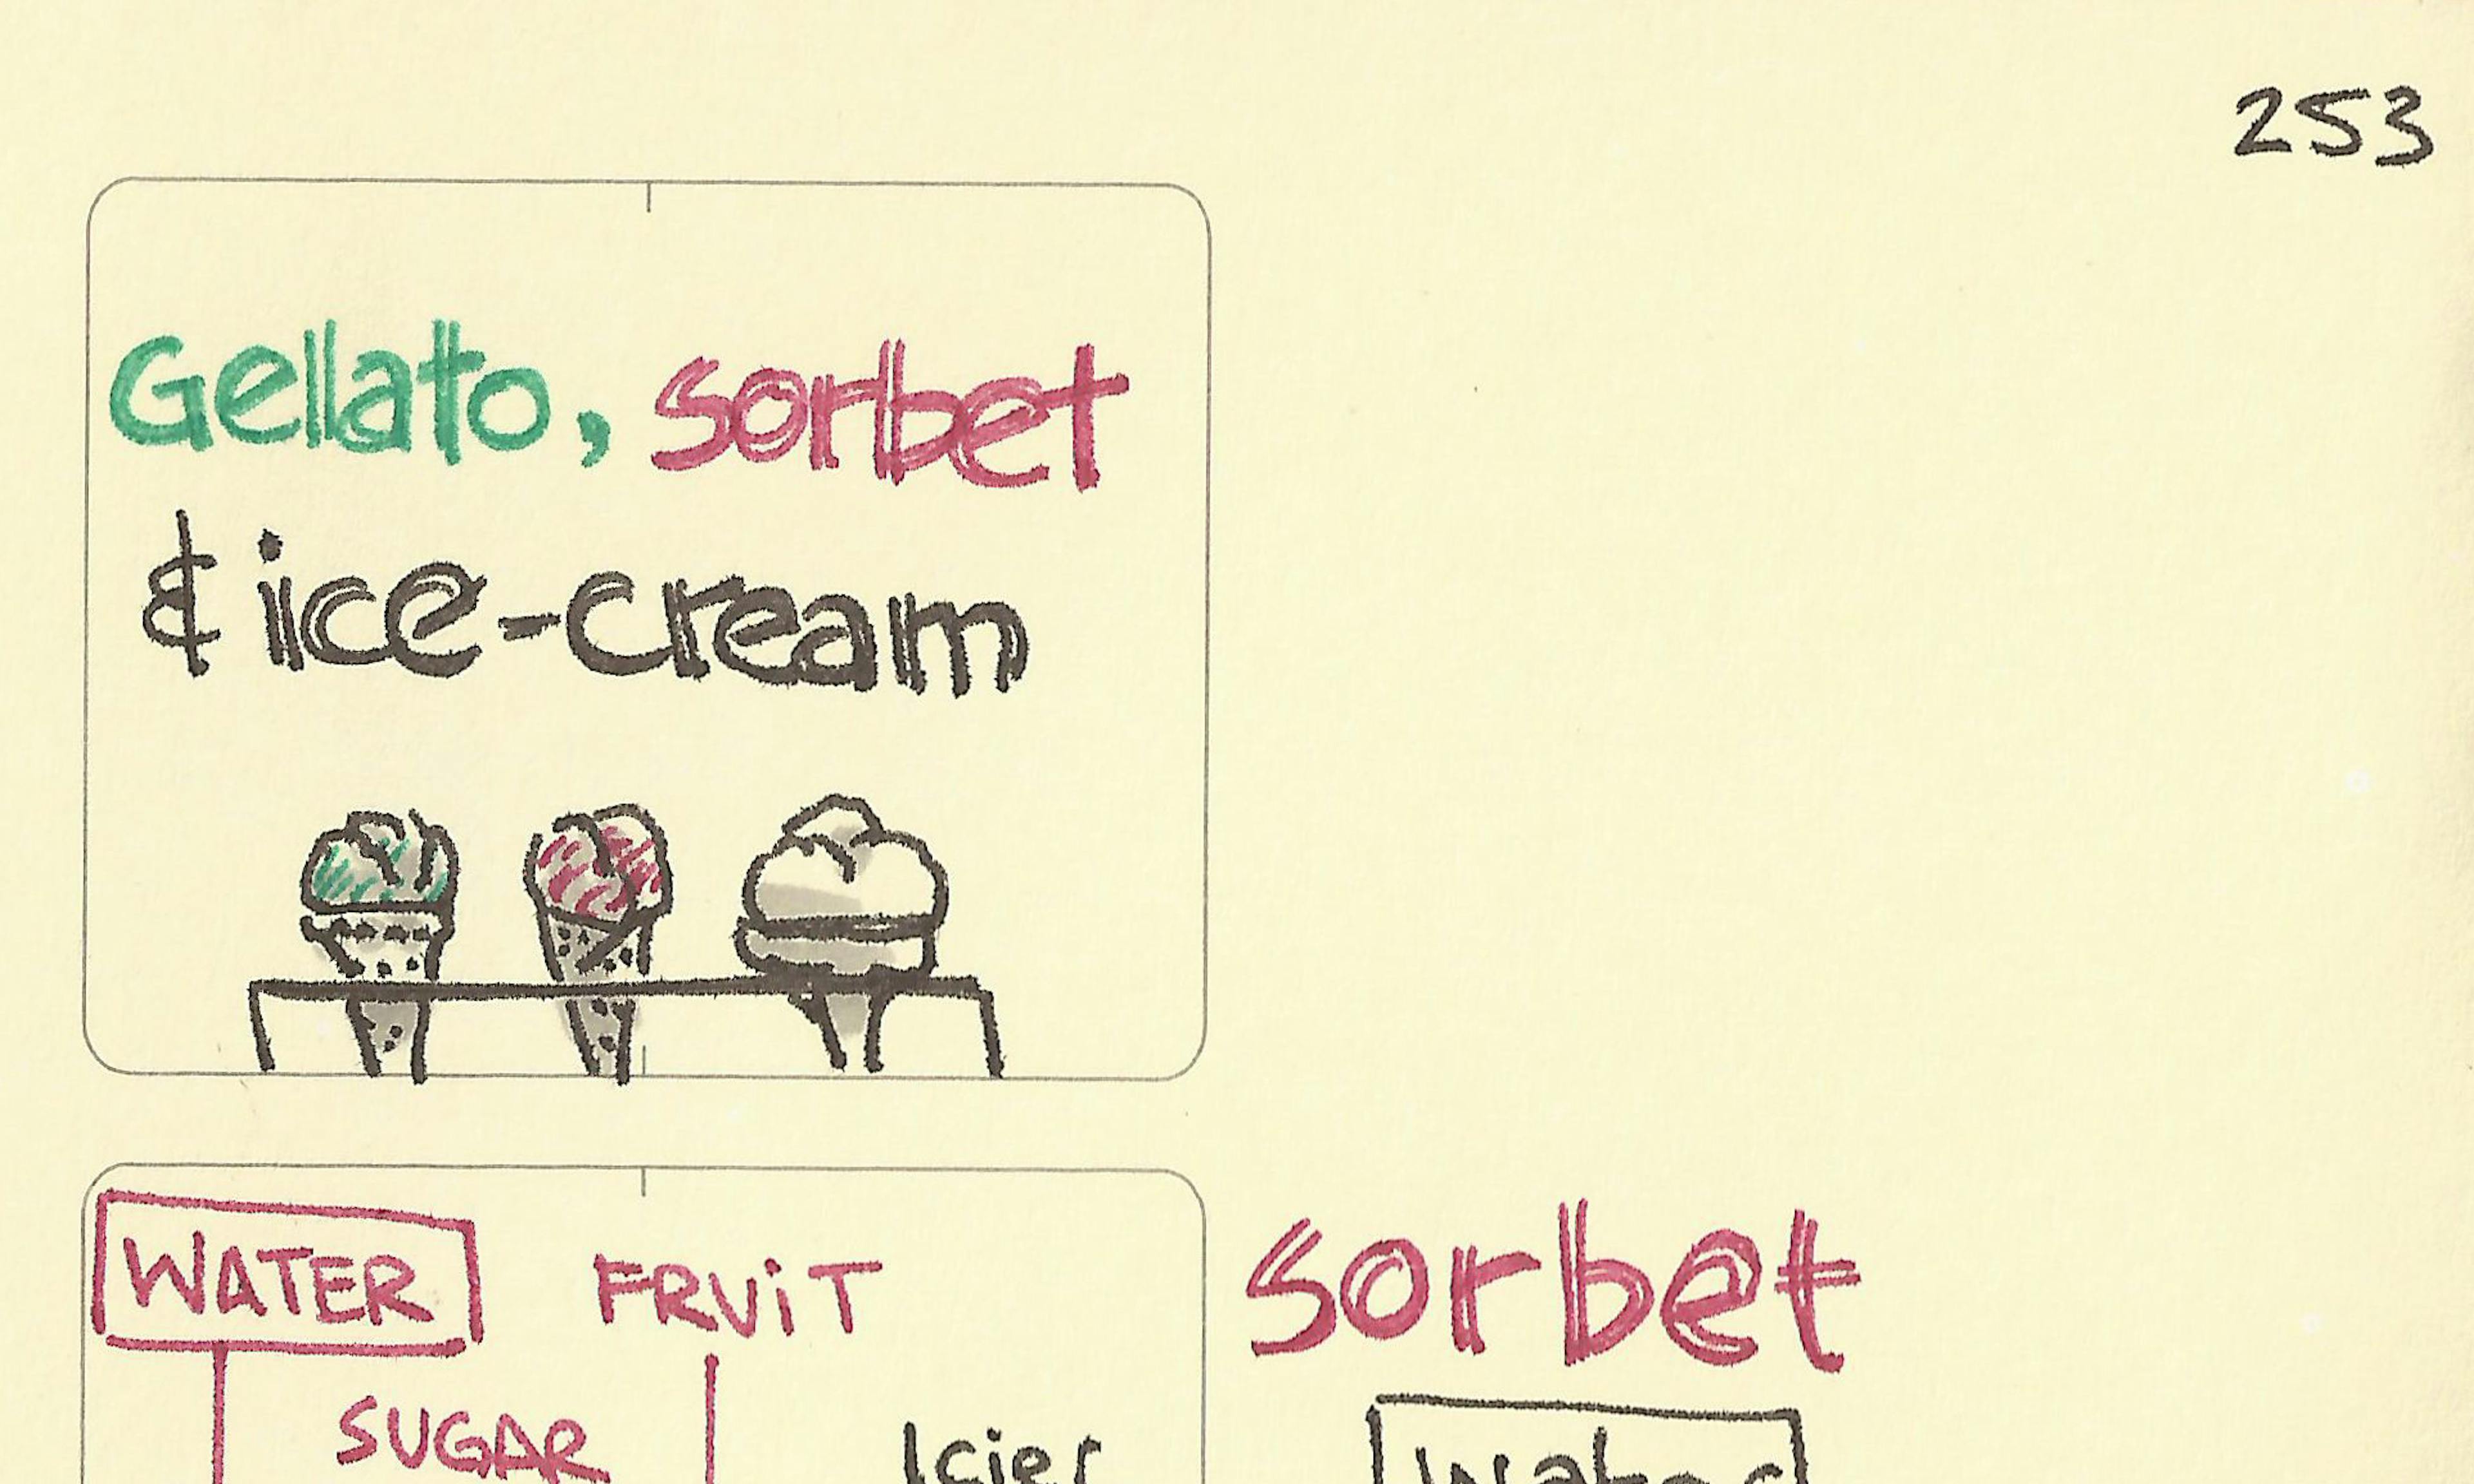 253
Gellato, sorbet
& ice-cream
WATER FRUiT
sorbet
SUGAR
Icier
Water